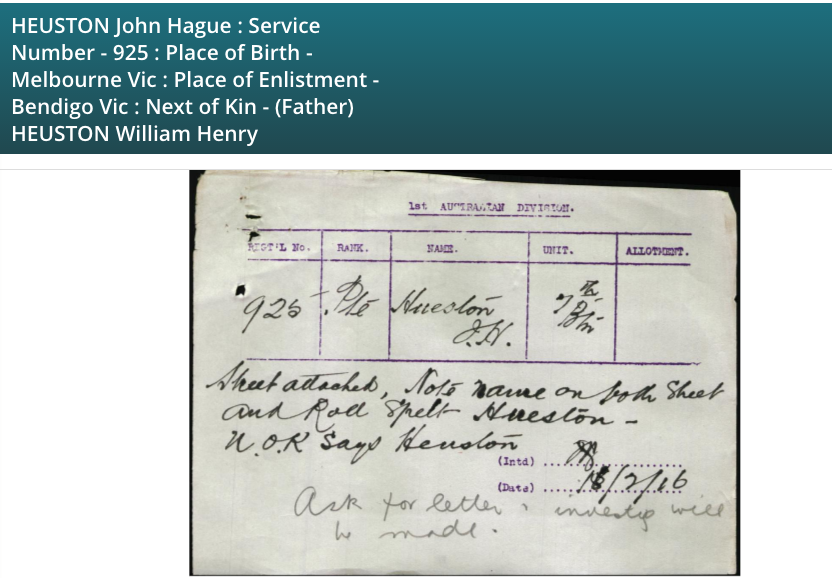 HEUSTON John Hague : Service
Number - 925 : Place of Birth -
Melbourne Vic : Place of Enlistment -
Bendigo Vic : Next of Kin - (Father)
HEUSTON William Henry
1st AUSTRALIAN DIVISION.
REGT'L No. RANK. NAME. UNIT. ALLOTMENT.
925 Pte Hueston J.H. 7th Btn
Sheet attached, Note name on both Sheet
and Roll Spelt Hueston -
N.O.K Says Heuston
(Intd)
(Date) /2/16
Ask for letter, investig will
be made.